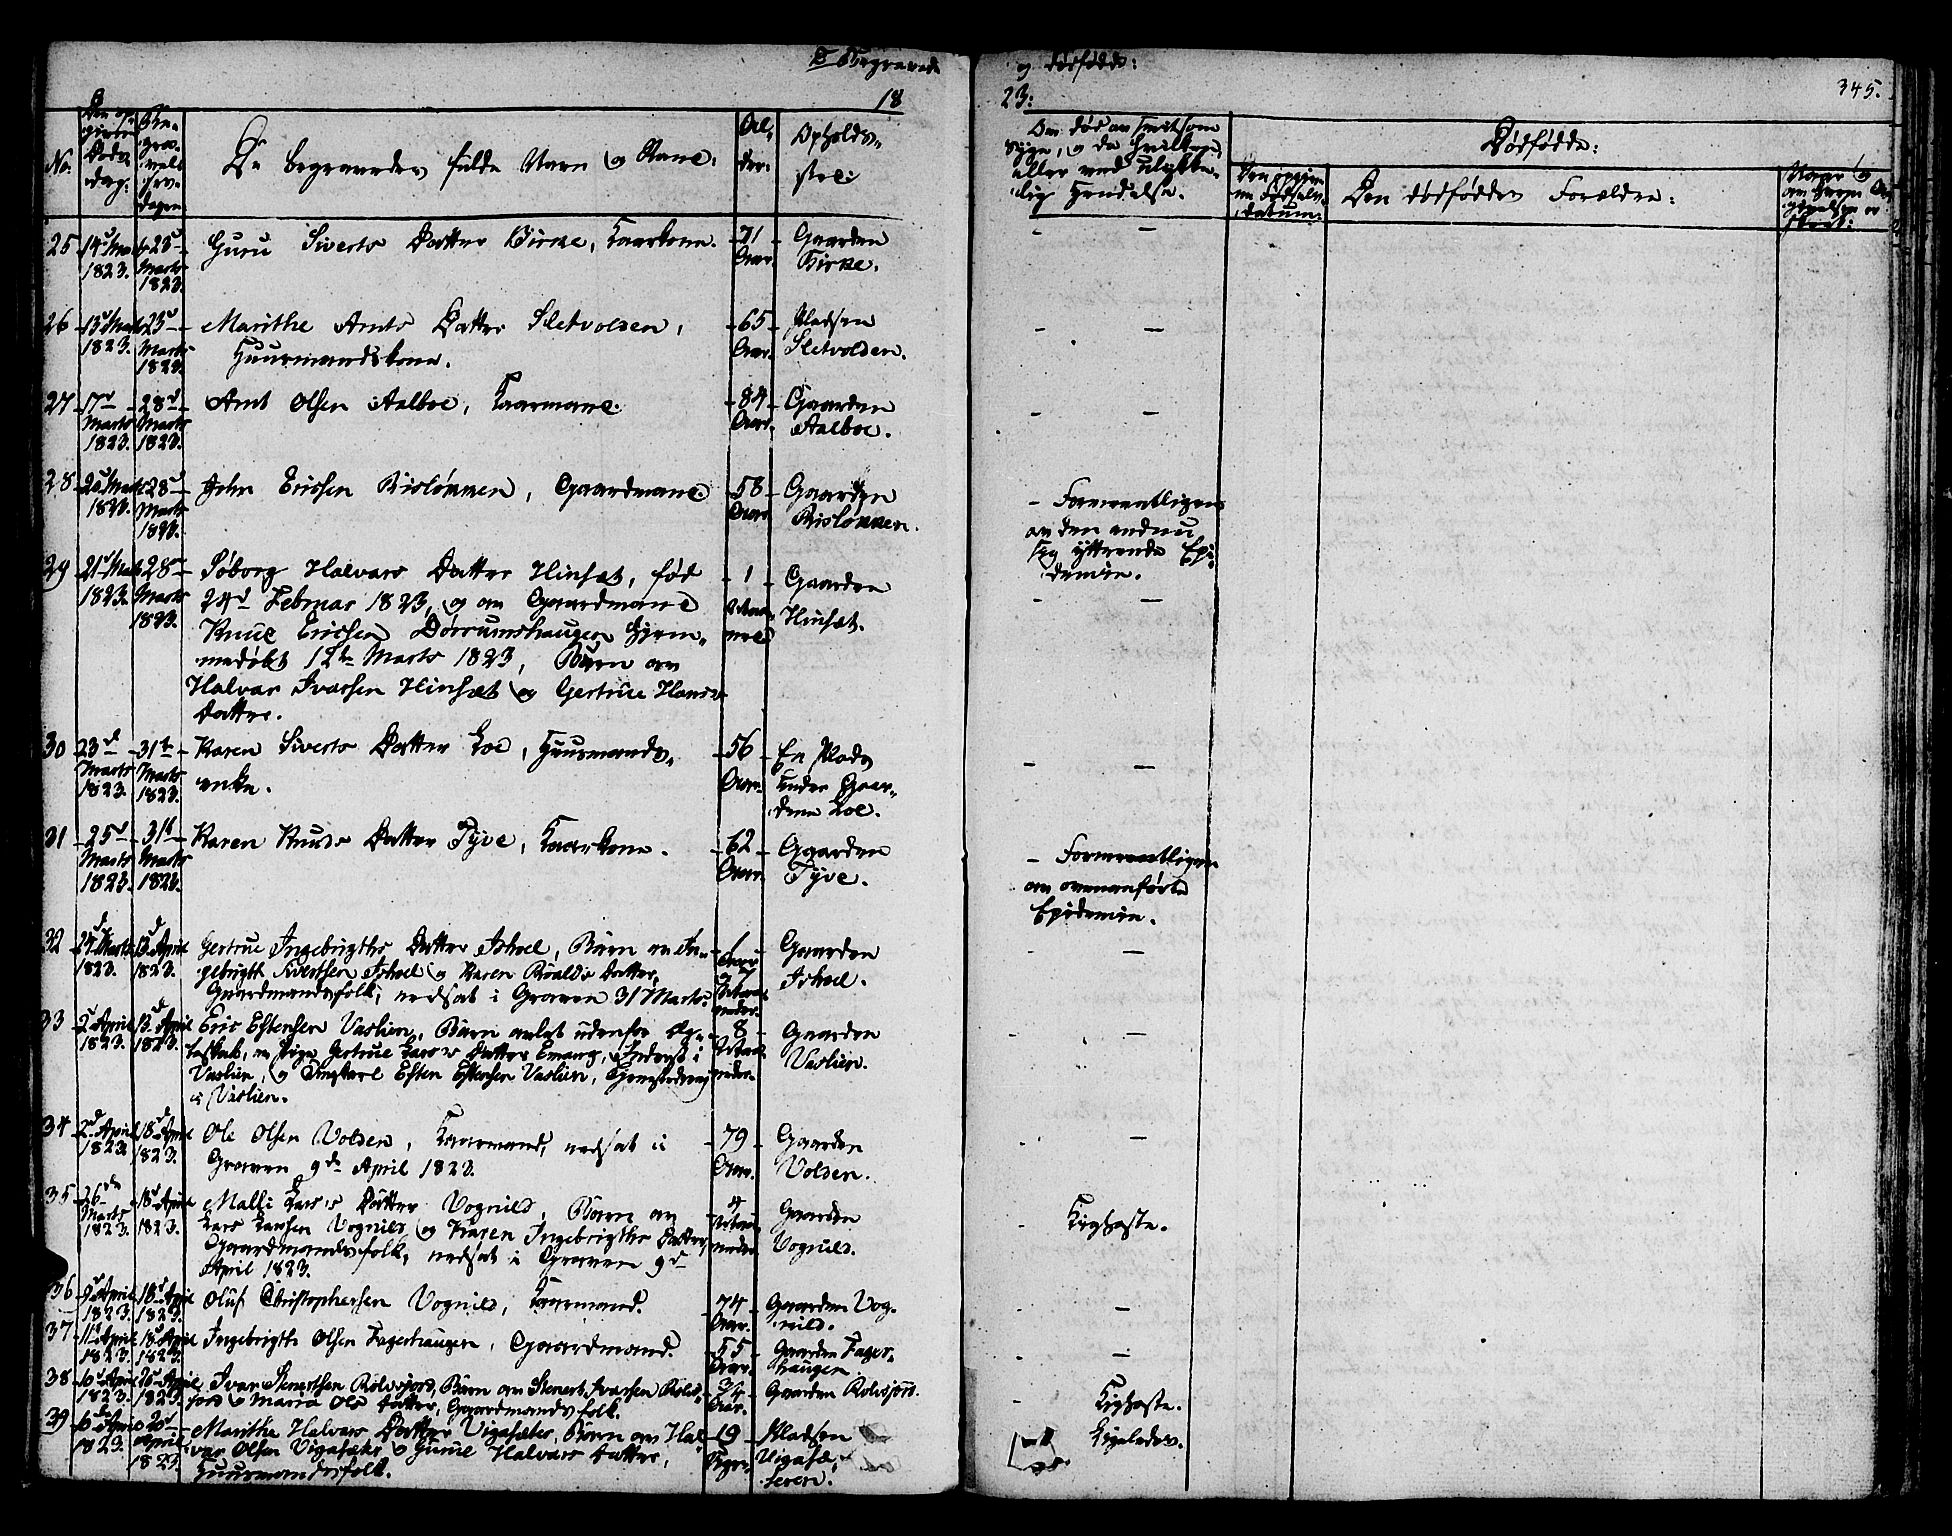 Begravede
og dødfødte:
18
23:
345.
No:
Den op-
givne
Døds-
dag:
Be-
gra-
vel-
ses-
dagen
De begravedes fulde Navn og Stand:
Al-
der:
Opholds-
sted:
Om død av smitsom
Syge, og da hvilken,
eller ved ulykke-
lig Hendelse.
Dødfødte:
Den opgiv-
ne Fødsels-
datum:
Den dødføddes Forældre:
25
14d Marts
1823.
23d
Marts
1823.
Guru Siverts Datter Birke, Kaarkone.
71
Aar.
Gaarden
Birke.
26
15d Marts
1823.
23d
Marts
1823.
Marithe Arnts Datter Sletvolden,
Huusmandskone.
65
Aar.
Pladsen
Sletvolden.
27
17d
Marts
1823.
28d
Marts
1823.
Arnt Olsen Aalboe, Kaarmand.
84
Aar.
Gaarden
Aalboe.
28
20d Marts
1823.
28d
Marts
1823.
John Ericsen Rislønnen, Gaardmand.
58
Aar.
Gaarden
Rislønnen.
Formeentligen
av den endnu
sig yttrende Epi-
demie.
29
21d Marts
1823.
28
Marts
1823.
Søborg Halvars Datter Hinsæt, fød
24d Februar 1823, og av Gaardmand
Knud Ericsen Dørrumshaugen hjem-
medøbt 12te Marts 1823, Barn av
Halvar Ivarsen Hinsæt og Gertrue Hans
Datter.
1
Maa-
ned
Gaarden
Hinsæt.
30
23d
Marts
1823.
31te
Marts
1823.
Karen Siverts Datter Loe, Huusmands-
enke.
56
Aar.
En Plads
under Gaar-
den Loe.
31
25d
Marts
1823.
31te
Marts
1823.
Karen Knuds Datter Tyve, Kaarkone.
62
Aar.
Gaarden
Tyve.
Formeentligen
av ovenanførte
Epidemie.
32
27d Marts
1823.
13d April
1823.
Gertrue Ingebrigths Datter Ishoel, Barn av In-
gebrigth Sivertsen Ishoel og Karen Roalds Datter,
Gaardmandsfolk, nedsat i Graven 31 Marts.
Gaarden
Ishoel.
33
2d April
1823.
13d April
1823.
Eric Estensen Vaslien, Barn avlet udenfor Æg-
teskab, av Pige Gertrue Lars Datter Emang, Inderst i
Vaslien, og Ungkarl Esten Estensen Vaslien, Hjemstedsvang
i Vaslien.
8
Maa-
neder.
Gaarden
Vaslien.
34
2d April
1823.
18d April
1823.
Ole Olsen Volden, Kaarmand, nedsat i
Graven 9de April 1823.
79
Aar.
Gaarden
Volden.
35
26de
Marts
1823.
18d April
1823.
Malli Lars Datter Vognild, Barn av
Lars Larsen Vognild og Karen Ingebrigths Datter,
Gaardmandsfolk, nedsat i Graven 9d
April 1823.
Maa-
neder
Gaarden
Vognild.
Kighoste.
36
9d April
1823.
18d April
1823.
Oluf Christophersen Vognild, Kaarmand.
74
Aar.
Gaarden Vog-
nild.
37
11te April
1823.
18d April
1823.
Ingebrigth Olsen Fagerhaugen, Gaardmand.
55
Aar.
Gaarden Fager-
haugen
38
10d April
1823.
26d April
1823.
Ivar Stenertsen Rolvsjord, Barn av Stenert Ivarsen Rolvs-
jord og Maria Ols Datter, Gaardmandsfolk.
Aar.
Gaarden Rolvsjord.
Kighoste.
39
April
1823.
20d
April
1823.
Marithe Halvars Datter Vigasæter, Barn av Hal-
var Olsen Vigasæter og Gurue Halvars Datter,
Huusmandsfolk.
19
Uger.
Pladsen
Vigasæ-
teren.
Ligeledes.